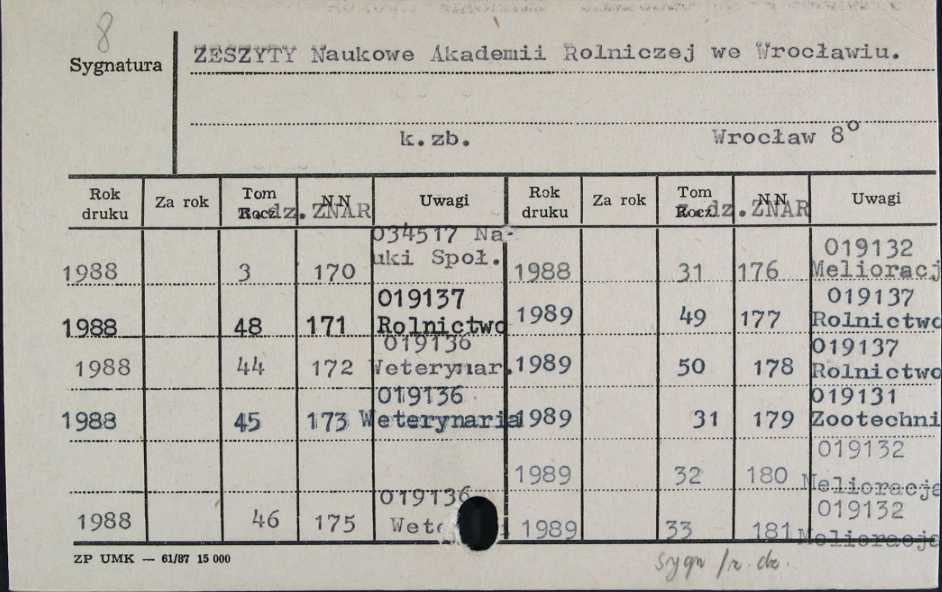 8
Sygnatura
ZESZYTY Naukowe Akademii Rolniczej we Wrocławiu.
k.zb. Wrocław 8°
Rok druku Za rok Tom Rocz. N N Uwagi Rok druku Za rok Tom Rocz. N N Uwagi
z.dz.ZNAR z.dz.ZNAR
1988 3 170 034517 Na-
uki Społ.
1988 48 171 019137
Rolnictwo
1988 44 172 019136
Weterynar.
1988 45 173 019136
Weterynaria
1988 46 175 019136
1988 31 176 019132
Melioracj
1989 49 177 019137
Rolnictwo
1989 50 178 019137
Rolnictwo
1989 31 179 019131
Zootechni
1989 32 180 019132
Melioracja
1989 33 181 019132
Melioracja
ZP UMK — 61/87 15 000
sygn